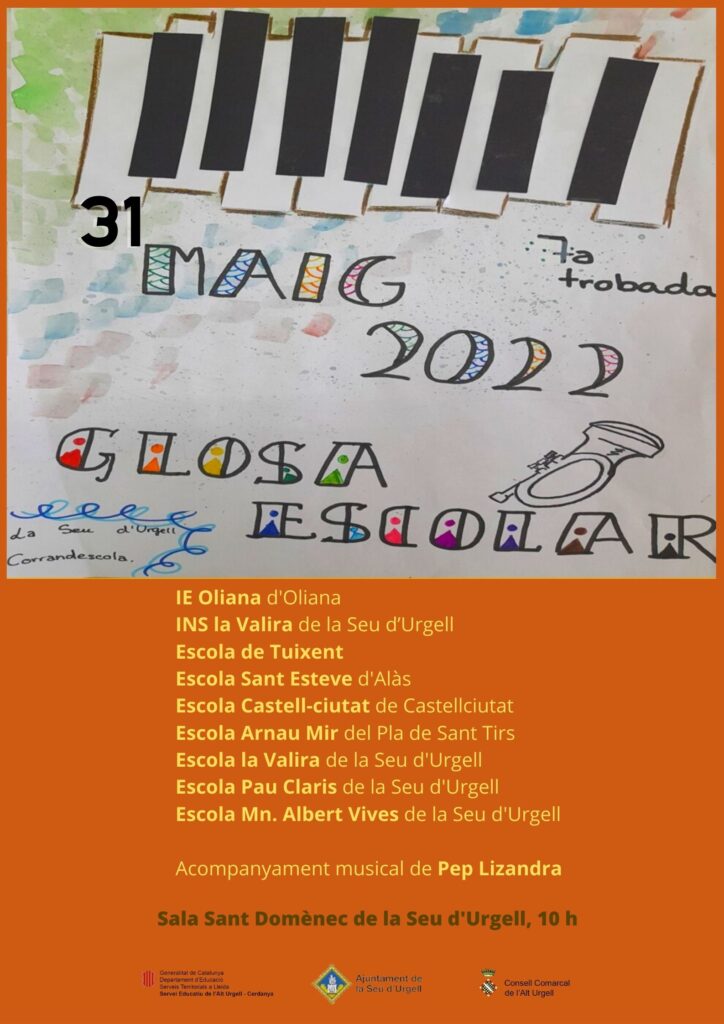 31
MAIG
7a
trobada
2022
GLOSA
ESCOLAR
La Seu d'Urgell
Corrandescola.
IE Oliana d'Oliana
INS la Valira de la Seu d’Urgell
Escola de Tuixent
Escola Sant Esteve d'Alàs
Escola Castell-ciutat de Castellciutat
Escola Arnau Mir del Pla de Sant Tirs
Escola la Valira de la Seu d'Urgell
Escola Pau Claris de la Seu d'Urgell
Escola Mn. Albert Vives de la Seu d'Urgell
Acompanyament musical de Pep Lizandra
Sala Sant Domènec de la Seu d'Urgell, 10 h
Generalitat de Catalunya
Departament d'Educació
Serveis Territorials a Lleida
Servei Educatiu de l'Alt Urgell - Cerdanya
Ajuntament de
la Seu d'Urgell
Consell Comarcal
de l'Alt Urgell